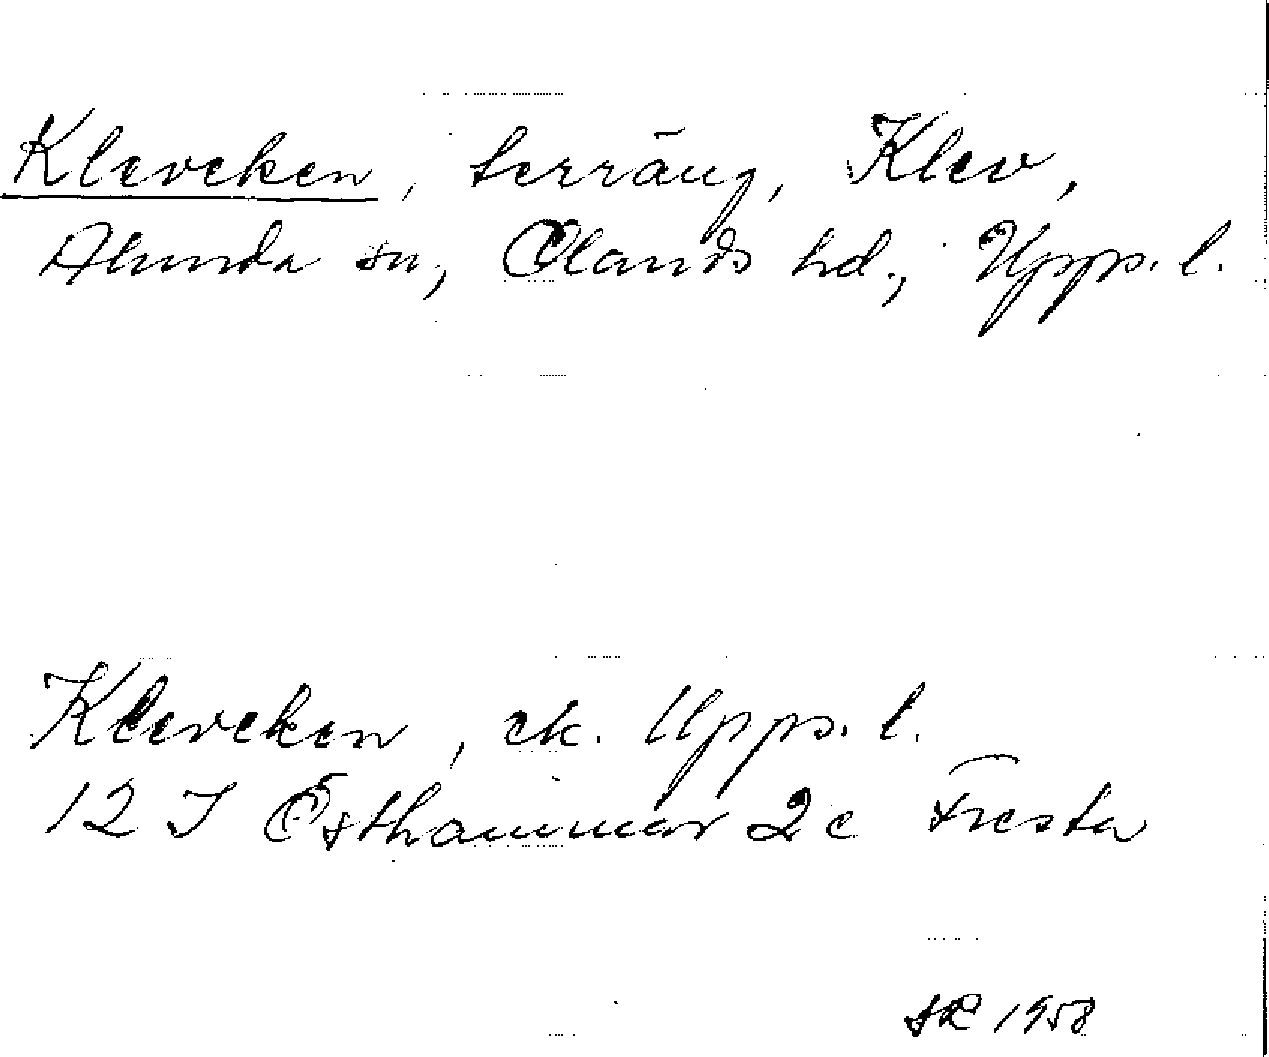 Kleveken, terräng, Klev,
Alunda sn, Olands hd., Upps. l.
Kleveken, ek. Upps. l.
12 I Östhammar 2c Fresta
1958